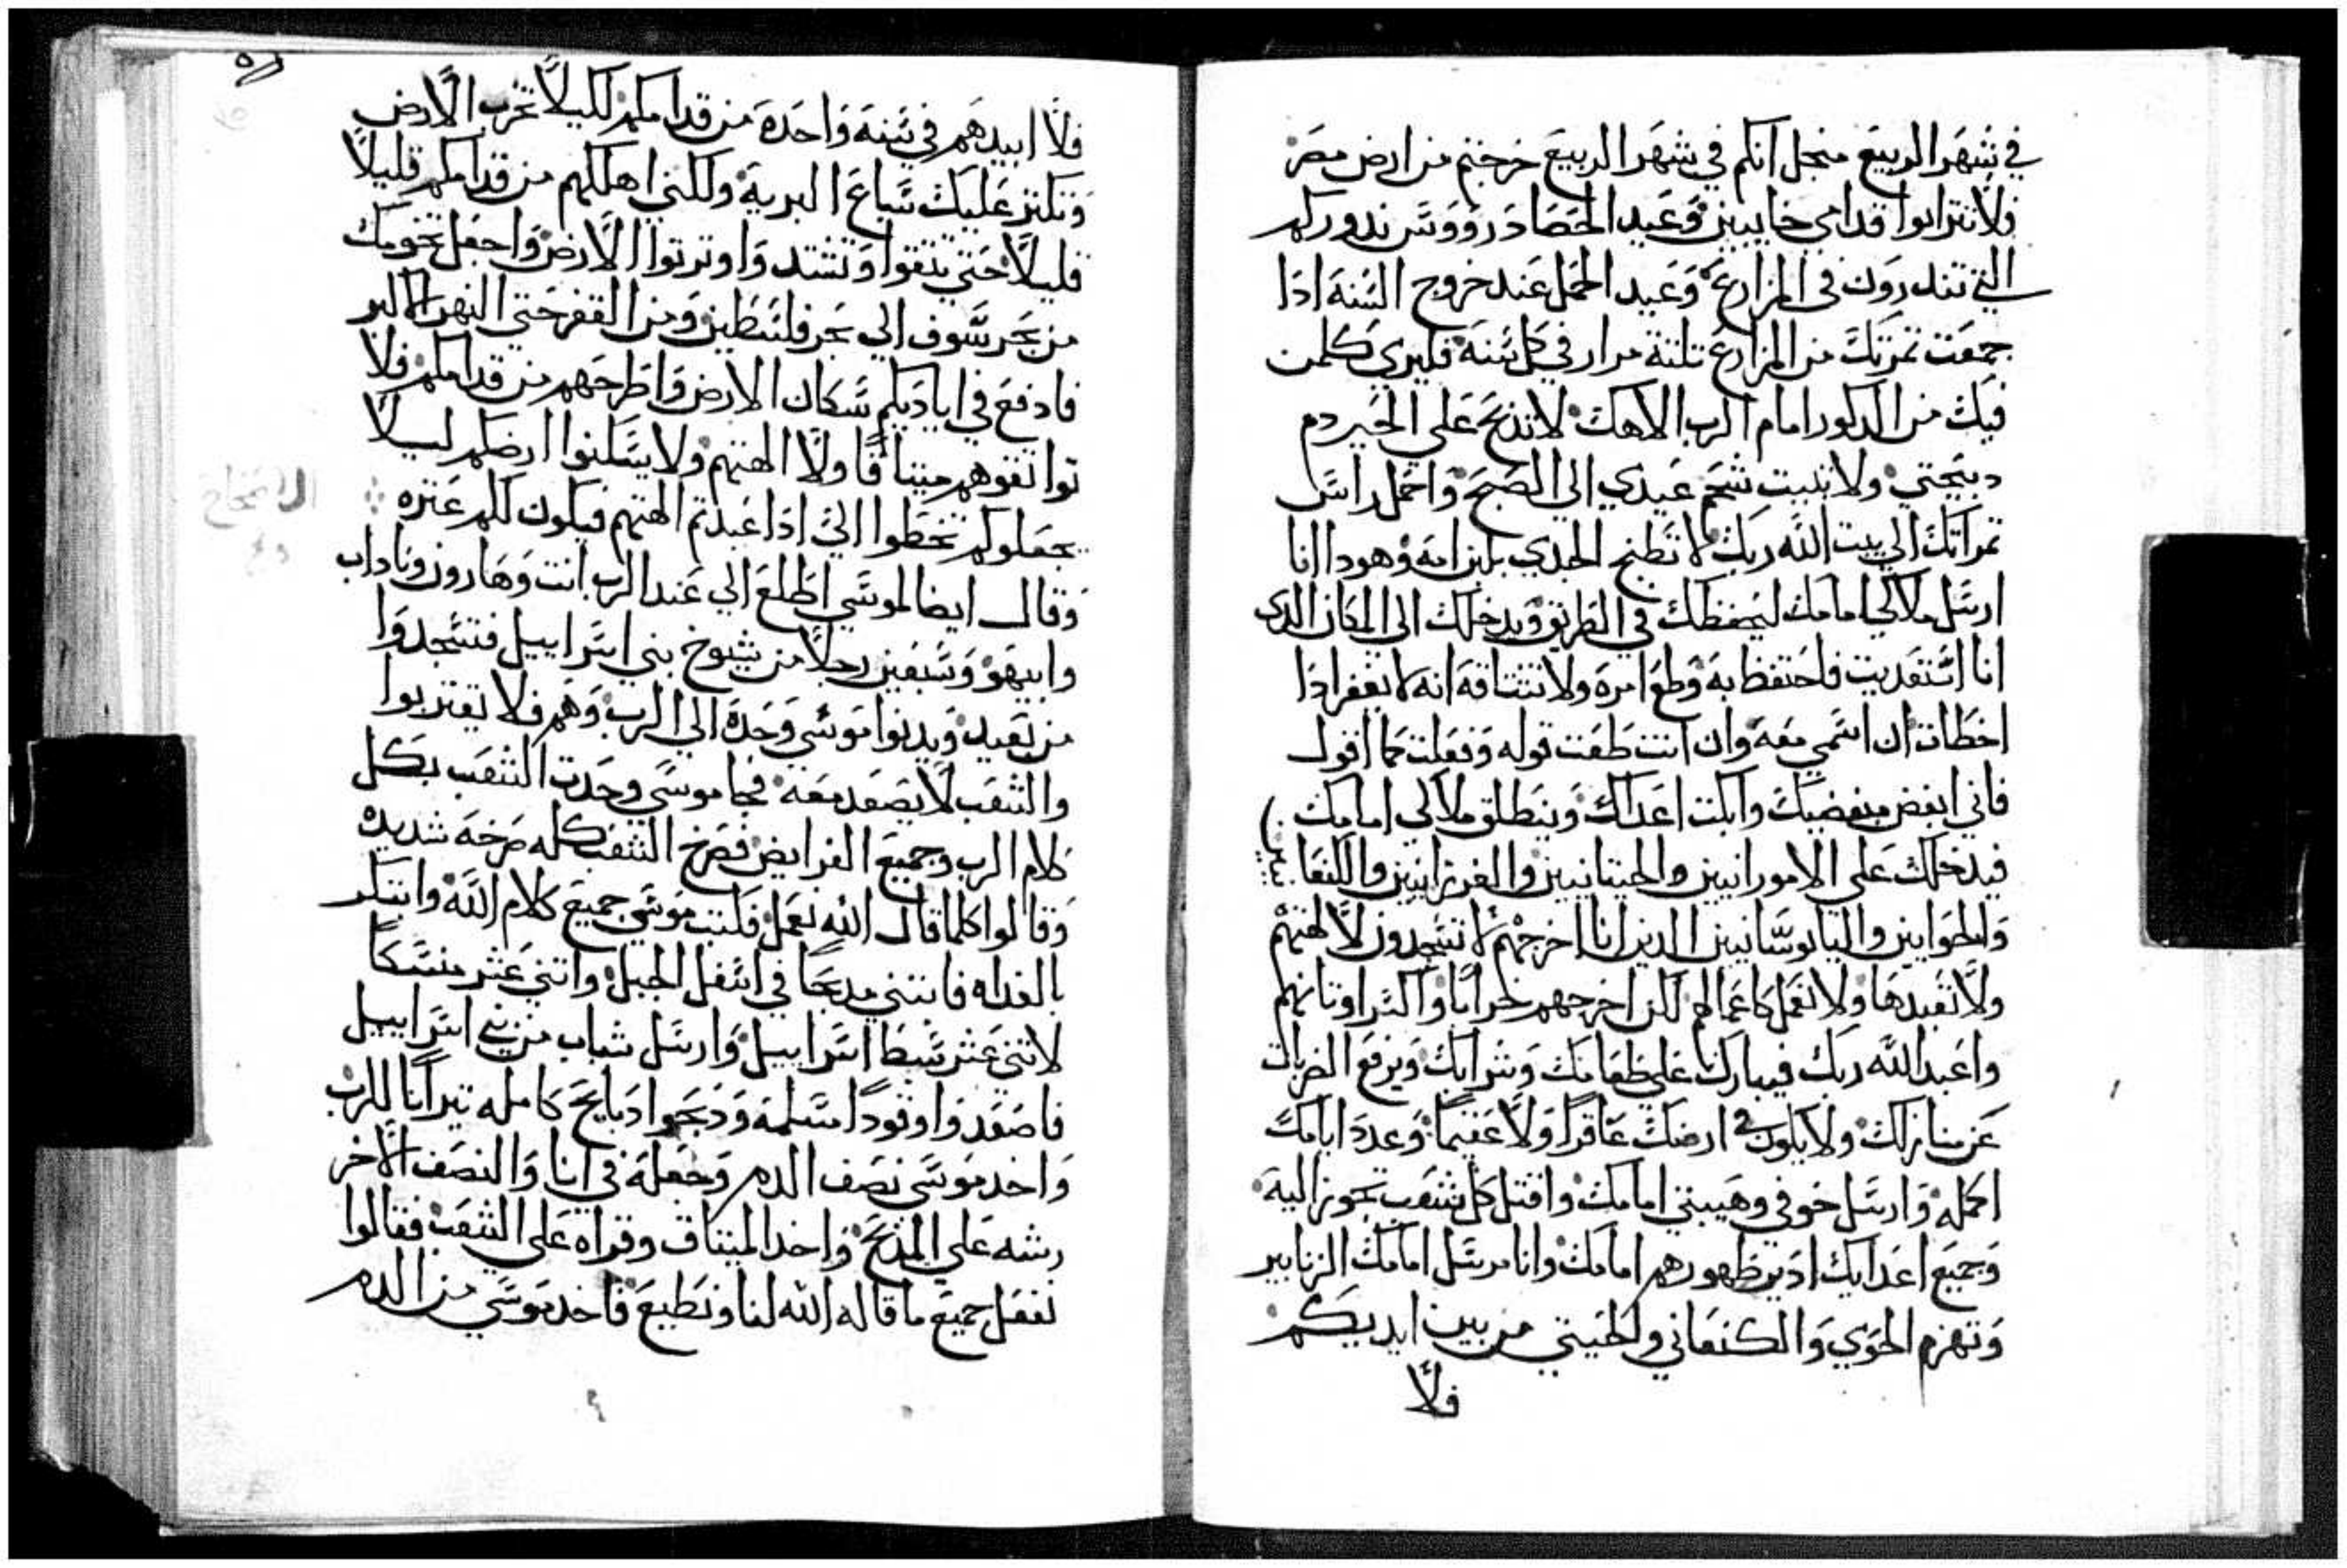 في شهر الربيع منجل انكم في شهر الربيع خرجتم من ارض مصر
فلا تتراوا قدامي خايبين وعيد الحصاد رووس ندوركم
التي تندرون في المزارع وعيد الحمل عند خروج السنه ادا
جمعت تمرتك من المزارع تلتة مرار في كل سنه فليري كلمن
فيك من الدكور امام الرب الاهك لا تدبح علي الخير دم
دبيحتي ولا تبيت شحم عيدي الي الصبح واحمل راس
تمراتك الي بيت الله ربك لا تطبخ الجدي بلبن امه وهودا انا
ارسل ملاكي امامك ليحفظك في الطريق ويدخلك الي المكان الدي
انا استعديت فاحتفظ به وطع امره ولا تشاقه انه لا يغفر ادا
اخطات ان اسمي معه وان انت طعت قوله وفعلت كما اقول
فاني ابغض مبغضيك واكبت اعداك وينطلق ملاكي امامك
فيدخلك علي الامورانيين والحيتانيين والفرزانيين والكنعا
والحوايين واليابوسانيين الدين انا اخرجهم لا تسجدون لالهتهم
ولا تعبدها ولا تعمل كاعمالهم لكن اخرجهم خرابا واكسر اوتانهم
واعبد الله ربك فيبارك علي طعامك وشرابك ويرفع الضربات
عن منازلك ولا يكون في ارضك عاقرا ولا عقيما وعدد ايامك
اكمله وارسل خوفي وهيبتي امامك واقتل كل شعب تجوز اليه
وجميع اعدايك ادير ظهورهم امامك وانا مرسل امامك الزنابير
وتهزم الحوي والكنعاني والحيتي من بين ايديكم
فلا
فلا ابيدهم في سنه واحده من قدامكم لكيلا تخرب الارض
وتكثر عليك سباع البرية ولكني اهلكهم من قدامكم قليلا
قليلا حتي تنقوا وتشتد واوترتوا الارض واجعل تخومك
من بحر سوف الي بحر فلسطين ومن القفر حتي النهر الاكبر
فادفع في اياديكم سكان الارض واطرحهم من قدامكم فلا
تواتقوهم ميتاقا ولا الهتهم ولا يسكنوا ارضكم ليلا
يجعلوكم تخطوا الي ادا عبدتم الهتهم فيكون لكم عتره
وقال ايضا لموسي اطلع الي عند الرب انت وهارون وناداب
وابيهو وسبعين رجلا من شيوخ بني اسراييل فتسجدوا
من بعيد ويدنوا موسي وحده الي الرب وهم فلا يقتربوا
والشعب لا يصعد معه فجا موسي وحدت الشعب بكل
كلام الرب وجميع الفرايض فصرخ الشعب كله صرخه شديده
وقالوا كلما قال الله نعمل فكتب موسي جميع كلام الله وابتكر
بالغداه فابتني مدبحا في اسفل الجبل واتني عشر منسكا
لاتني عشر سبطا اسراييل وارسل شباب من بني اسراييل
فاصعدوا وقودا مسلمه ودبحوا دبايح كامله تيرانا للرب
واخد موسي نصف الدم وجعله في انا والنصف الاخر
رشه علي المدبح واخد الميتاق وقراه علي الشعب فقالوا
نفعل جميع ما قاله الله لنا ونطيع فاخد موسي من الدم